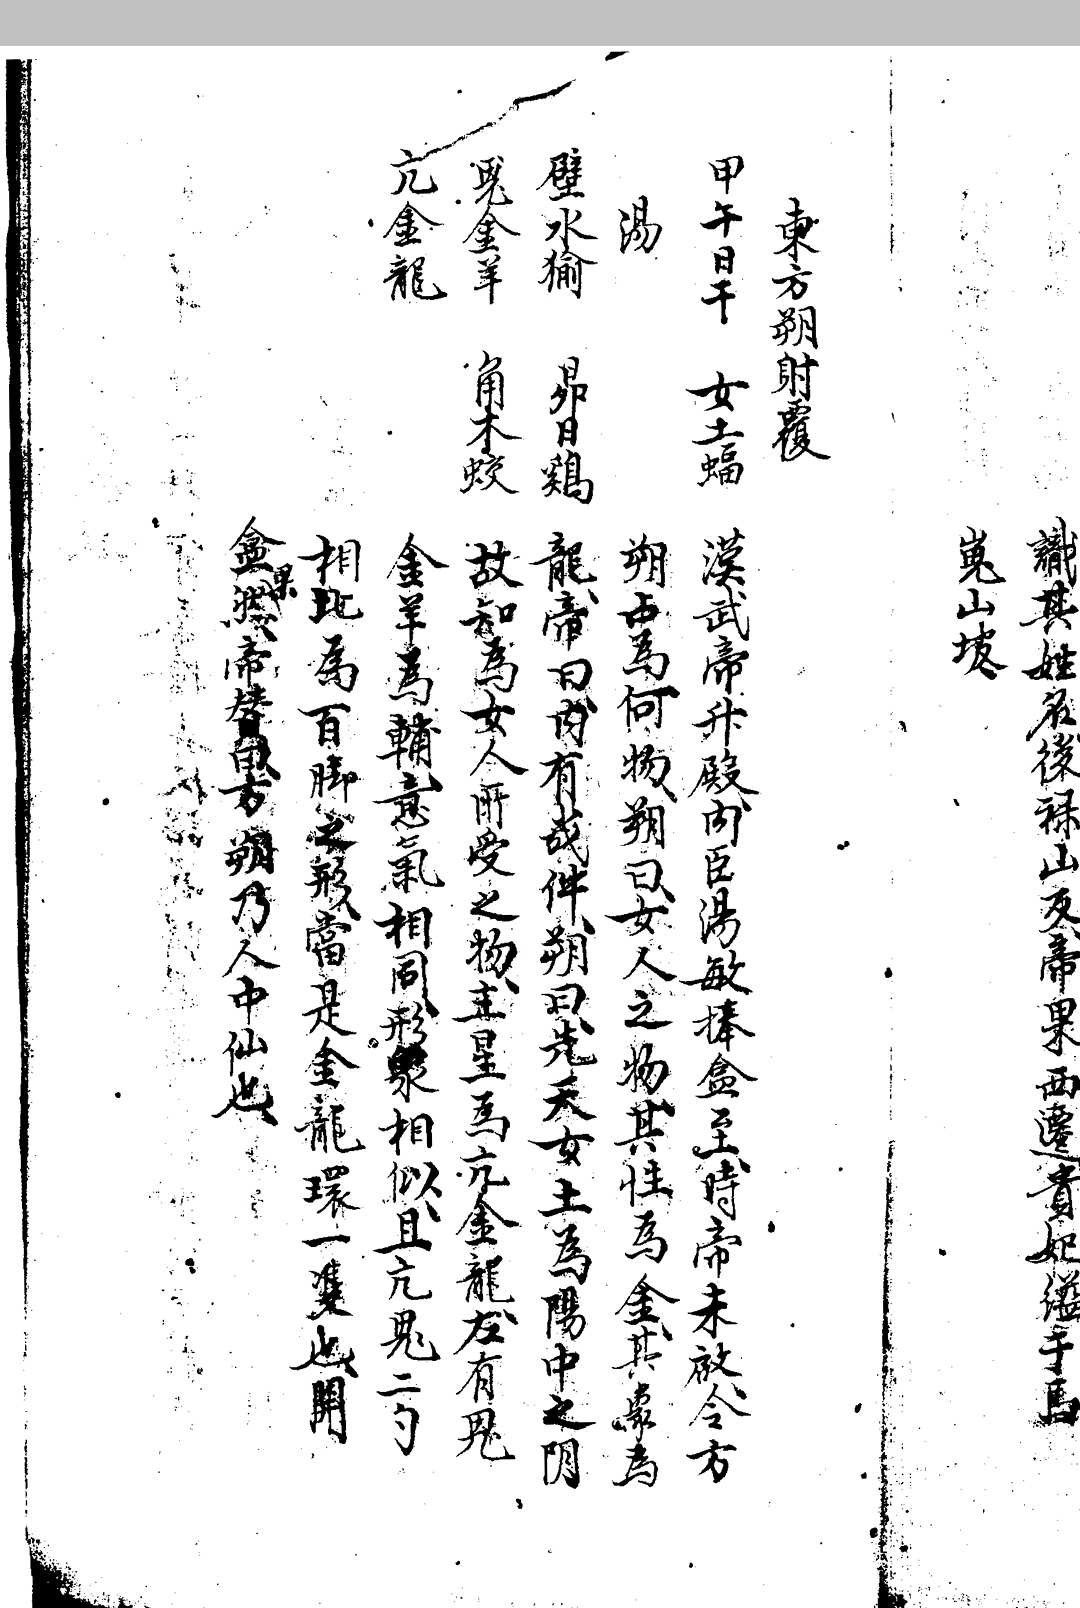 識其姓名後祿山反帝果西遷貴妃縊于馬
嵬山坡
東方朔射覆
甲午日干　女土蝠　漢武帝升殿內臣湯敏捧盒至時帝未啟令方
湯　朔占為何物朔曰女人之物其性為金其象為
壁水㺄　昴日鷄　龍帝曰內有成件朔曰先天女土為陽中之阴
鬼金羊　角木蛟　故知為女人所愛之物主星為亢金龍左有鬼
亢金龍　金羊為輔意氣相同形象相似且亢鬼二勺
相比為百脚之形當是金龍環一隻也開
盒果然帝替曰方朔乃人中仙也